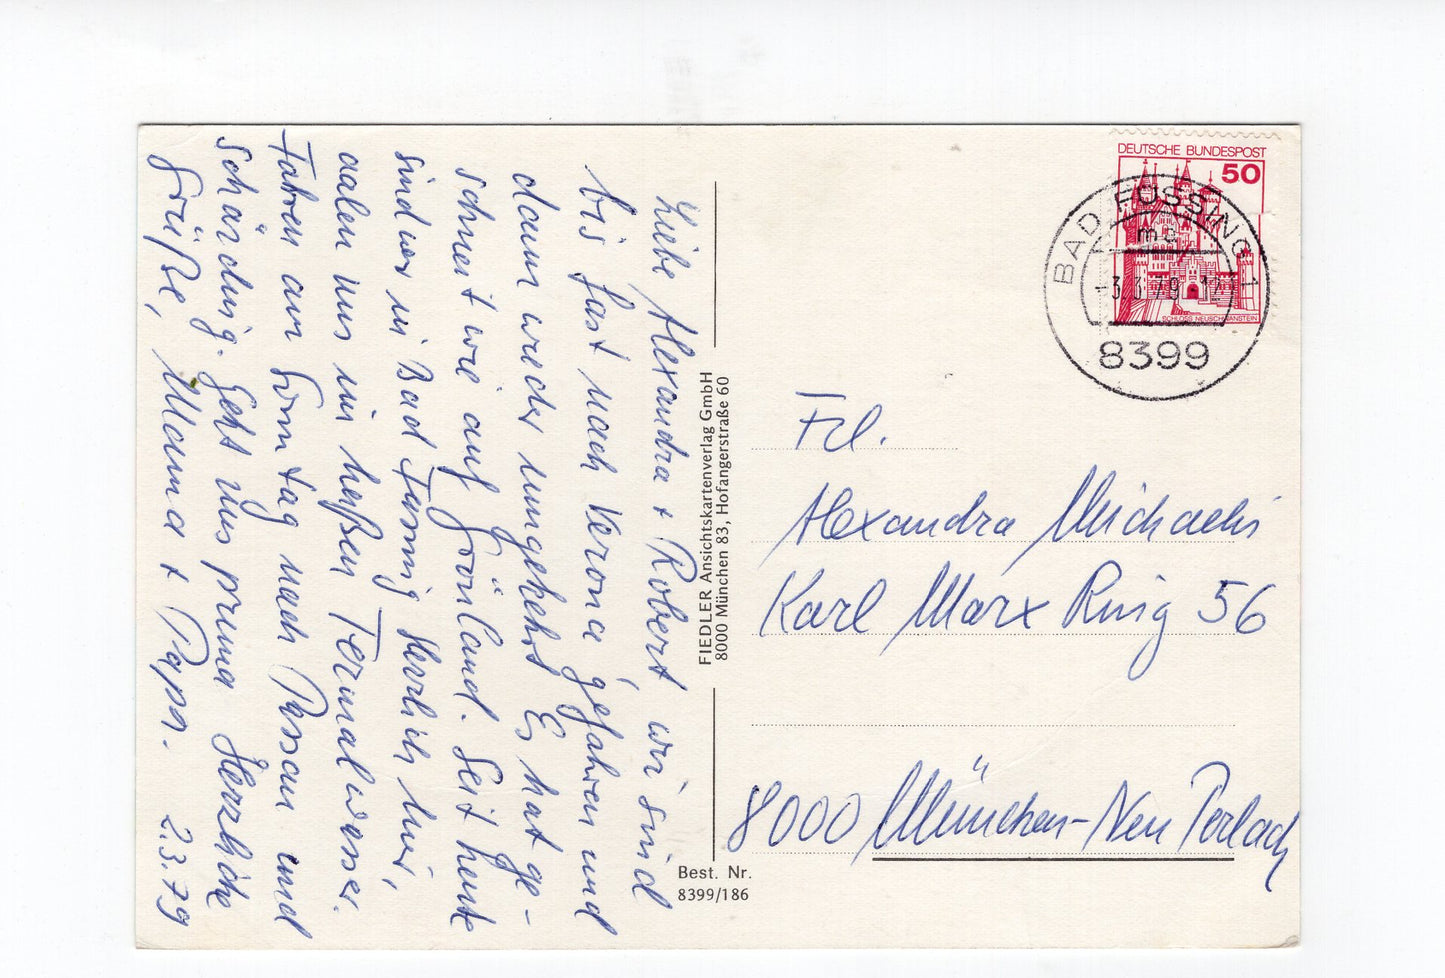 Liebe Alexandra + Robert, wir sind
bis fast nach Verona gefahren und
dann wieder umgekehrt. Es hat ge-
schneit wie auf Grönland. Seit heute
sind wir in Bad Füssing. Herrlich hier,
aalen uns im heißen Termalwasser.
Fahren am Sonntag nach Passau und
Schärding. Geht uns prima. Herzliche
Grüße, Mama + Papa. 2.3.79
FIEDLER Ansichtskartenverlag GmbH
8000 München 83, Hofangerstraße 60
Best. Nr.
8399/186
DEUTSCHE BUNDESPOST
50
SCHLOSS NEUSCHWANSTEIN
BAD FÜSSING 1
-3.3.79-12
8399
Frl.
Alexandra Michaelis
Karl Marx Ring 56
8000 München-Neu Perlach